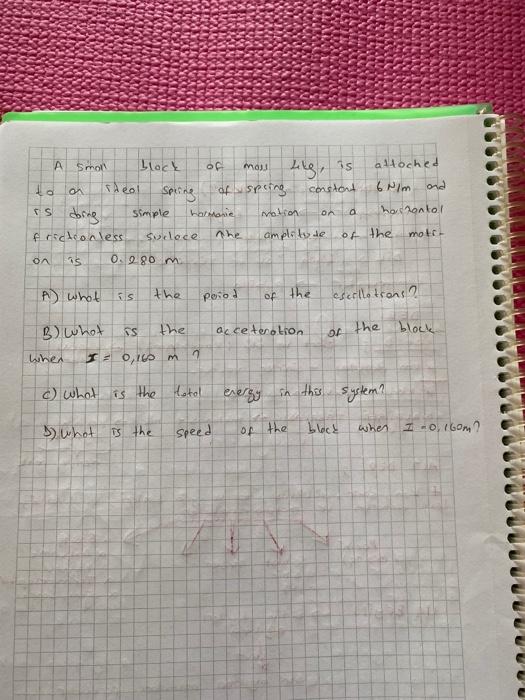 A small block of mass 4kg, is attached
to an ideal spring of spring constant 6 N/m and
is doing simple harmonic motion on a horizontal
frictionless surface the amplitude of the moti-
on is 0.280 m.
A) what is the period of the oscillations?
B) what is the acceleration of the block
when I = 0,160 m ?
c) what is the total energy in this system?
D) what is the speed of the block when I = 0,160m?